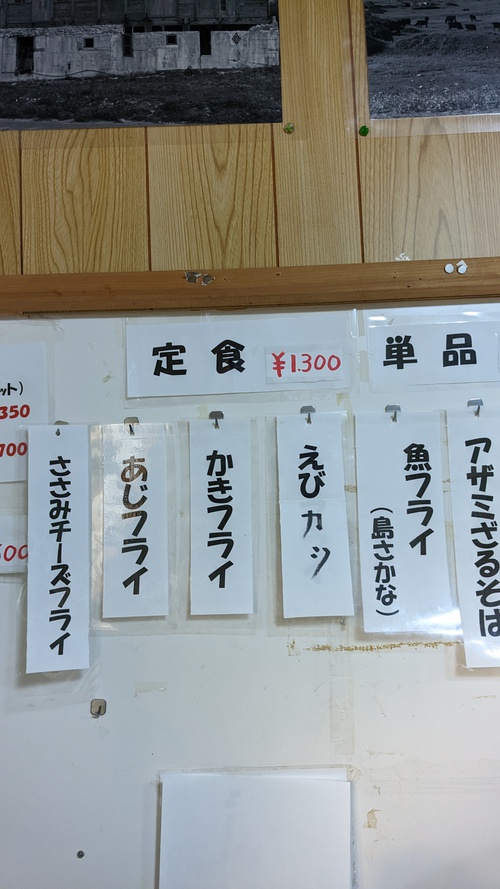 定食 ¥1.300
単品
ット)
350
700
500
アザミざるそば
魚フライ
(島さかな)
えびカツ
かきフライ
あじフライ
ささみチーズフライ